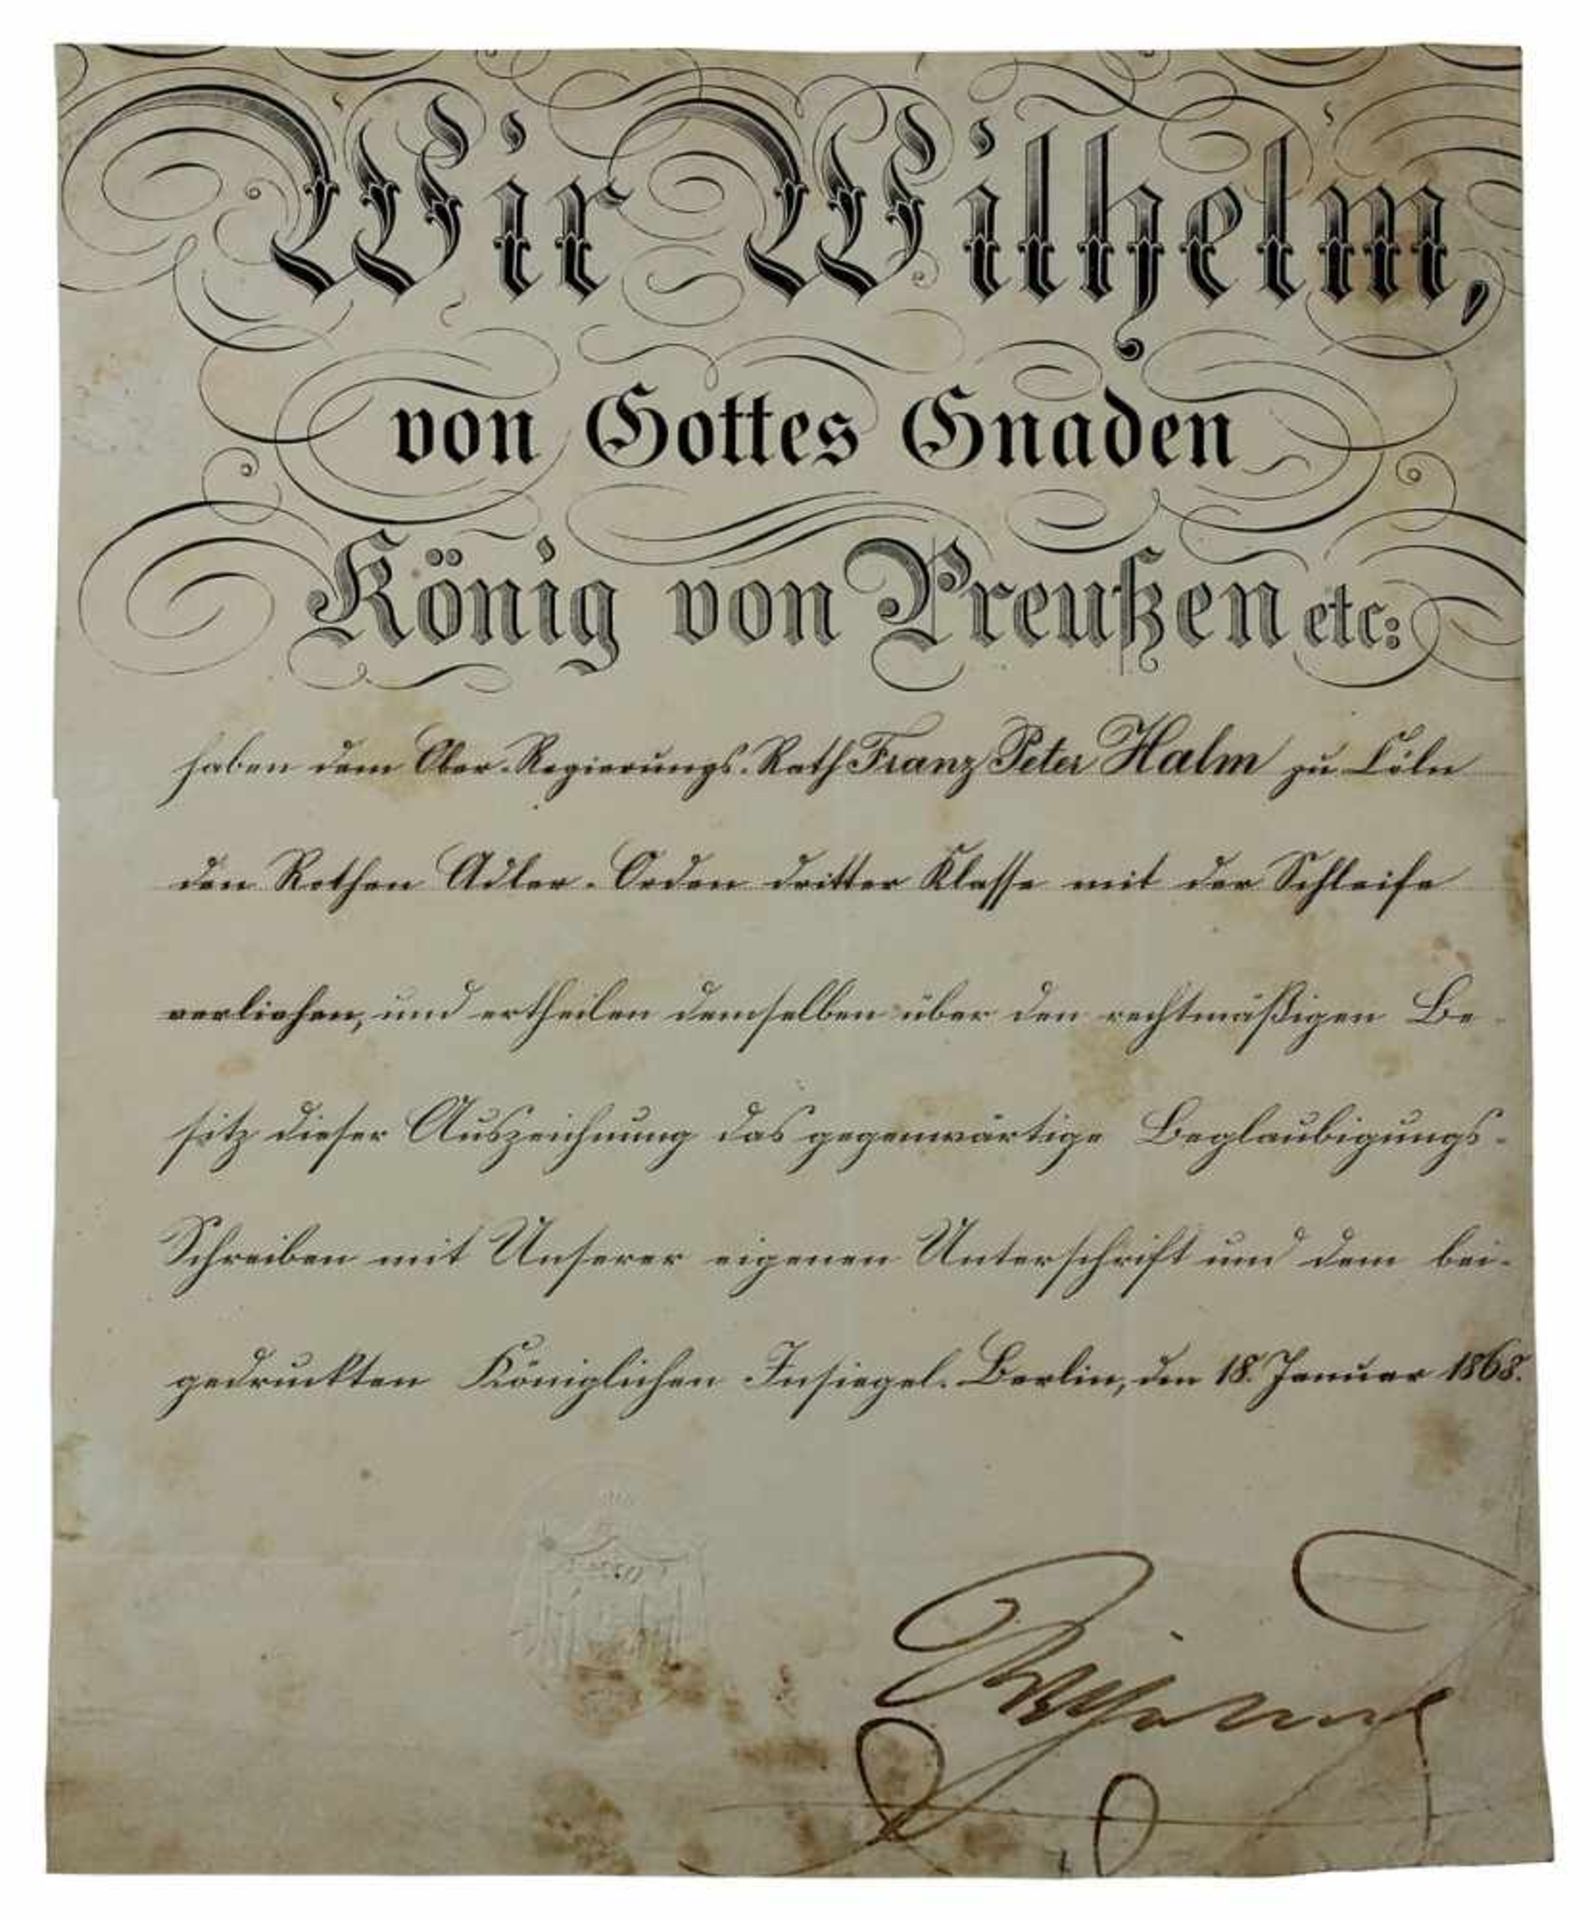 Wir Wilhelm,
von Gottes Gnaden
König von Preußen etc:
haben dem Ober-Regierungs-Rath Franz Peter Halm zu Cöln
den Rothen Adler-Orden dritter Klasse mit der Schleife
verliehen, und ertheilen demselben über den rechtmäßigen Be-
sitz dieser Auszeichnung das gegenwärtige Beglaubigungs-
Schreiben mit Unserer eigenen Unterschrift und dem bei-
gedruckten Königlichen Insiegel. Berlin, den 18. Januar 1868.
Wilhelm